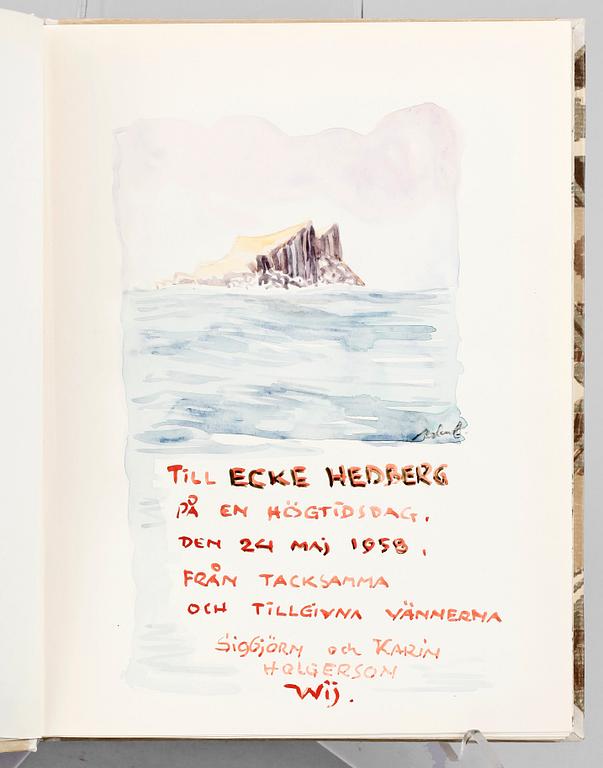 TILL ECKE HEDBERG
PÅ EN HÖGTIDSDAG,
DEN 24 MAJ 1958,
FRÅN TACKSAMMA
OCH TILLGIVNA VÄNNERNA
SIGBJÖRN och KARIN
HOLGERSON
Wij.